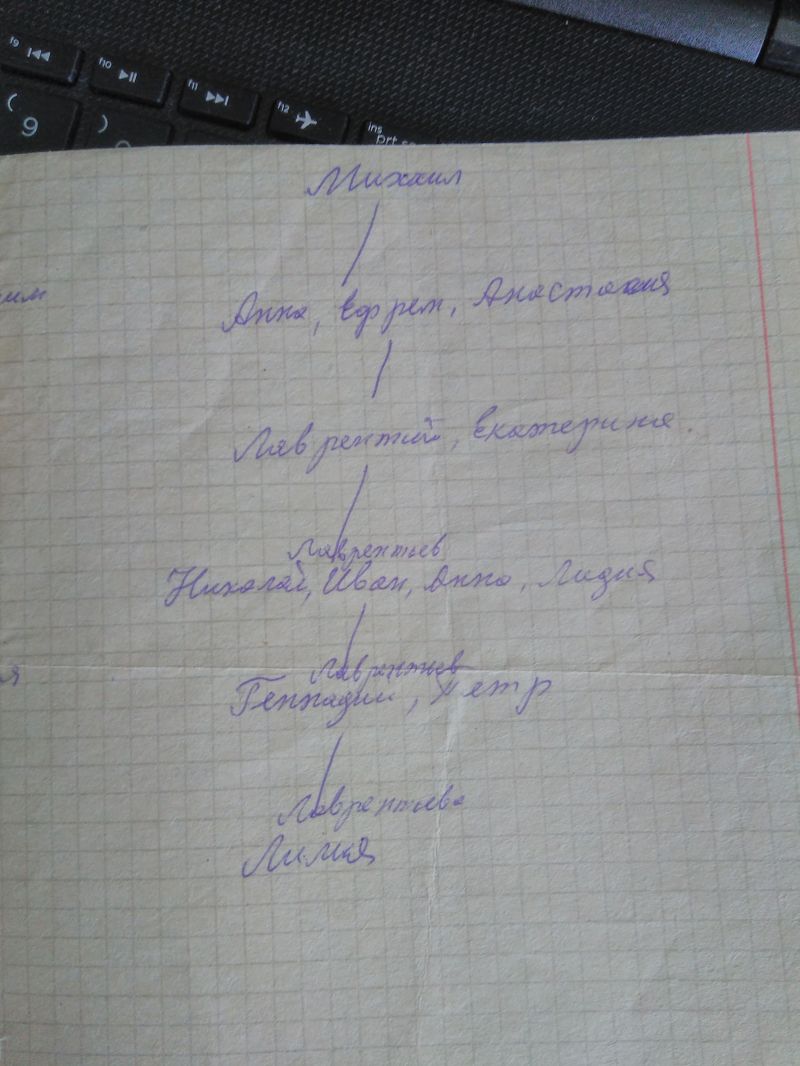 f9
f10
f11
f12
ins
prt sc
( 9
)
Михаил
Анна, Ефрем, Анастасия
Лаврентий, Екатерина.
Лаврентьев
Николай, Иван, Анна, Лидия
Лаврентьев
Геннадий, Петр
Лаврентьева